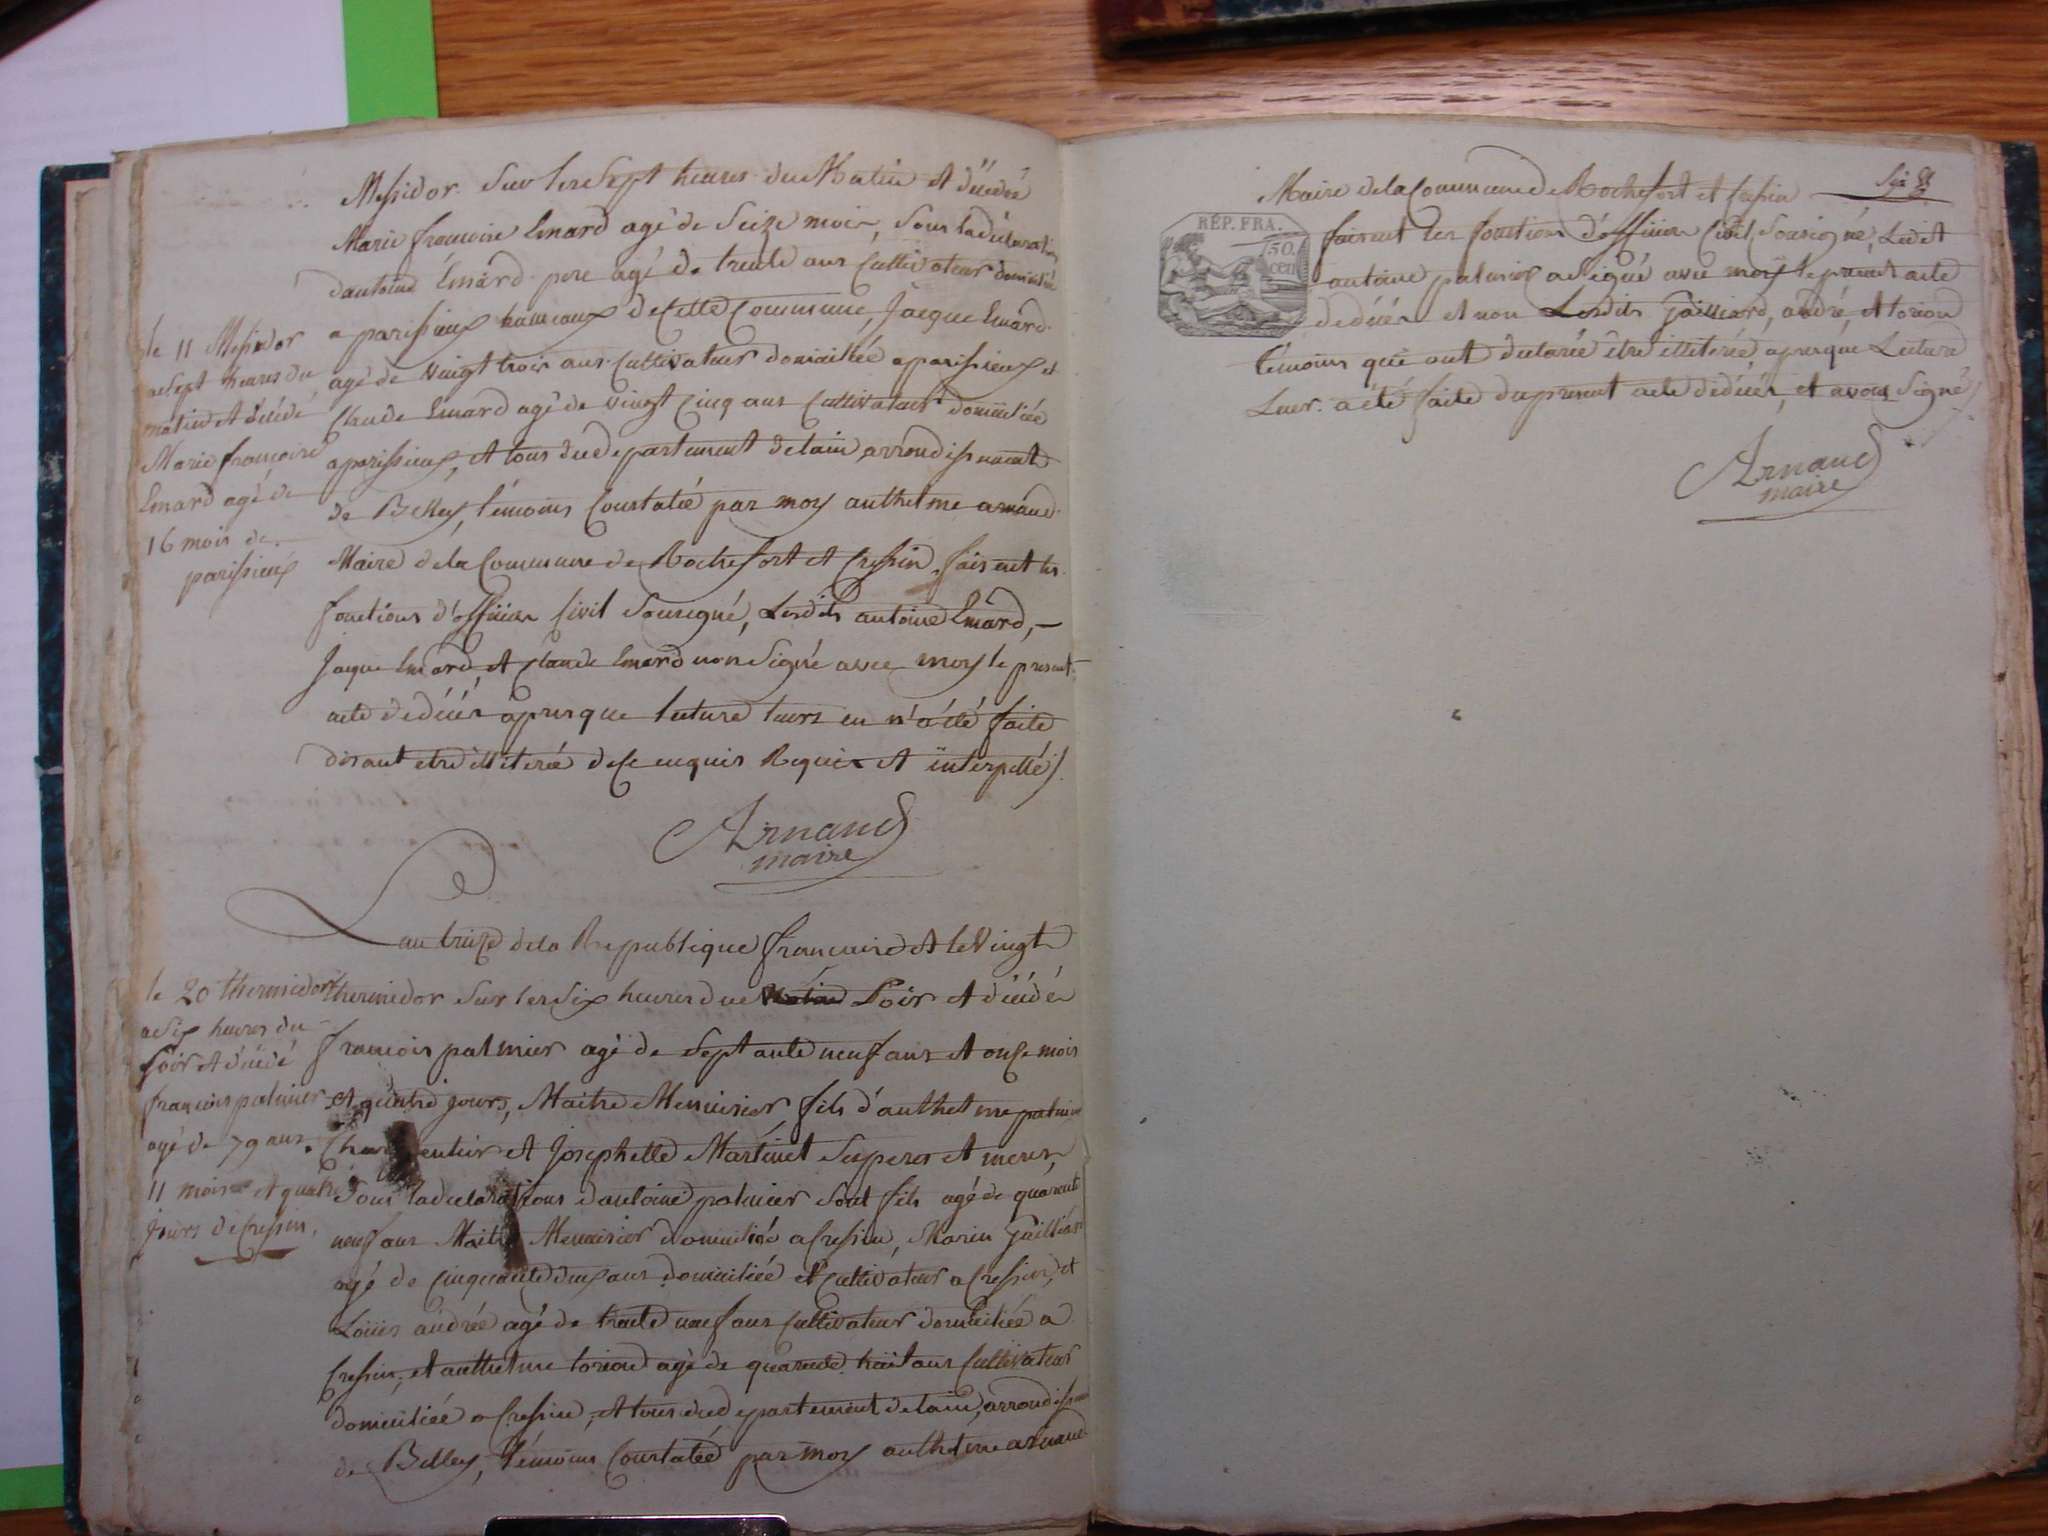 Messidor sur les Sept heures du Matin et dècedée
Marie françoise Emard agé de Seize mois, Sous la déclaration
dantoine Emard pere agé de trente ans Cultivateur domicilié
a parissieux hameaux de Cette Commune, Jacque Emard
agé de vingt trois ans Cultivateur domiciliée a parissieux et
Claude Emard agé de vingt Cinq ans Cultivateur domiciliée
a parissieux, et tous du departement de lain arrondissement
de Belley, témoins Constatée par moy anthelme arnaud
Maire de la Commune de Rochefort et Cressin faisent les
fonctions d'officier Civil Sousigné, Lesdits antoine Emard,
Jaque Emard, et Claude Emard non Signé avec moy le present
acte de décés apres que lecture leurs en n'a été faite
disant etre illiterée de Ce enquis Requis et interpellé
le 11 Messidor
a Sept heures du
matin et décédé
Marie françoise
Emard agé de
16 mois de
parissieux
Arnaud
maire
L'an treize de la Republique francaise et le Vingt
thermidor Sur les Six heures du Soir et décédé
françois palmier agé de Septante neuf ans et onse mois
et quatre jours, Maitre Menuisier, fils d'anthelme palmier
Charpentier et Josephette Martinet Ses peres et meres,
Sous la declarations dantoine palmier Sont fils agé de quarent
neuf ans Maitre Menuisier domicilié a Cressin, Marin Gailliard
agé de Cinquante deux ans domiciliée et Cultivateur a Cressin, et
Loüis andrée agé de trente neuf ans Cultivateur domiciliée a
Cressin, et anthelme torion agé de quarente huit ans Cultivateur
domiciliée a Cressin, et tous du departement de lain, arrondissement
de Belley, témoins Constatée par moy anthelme arnaud
le 20 thermidor
a Six heures du
soir et décédé
françois palmier
agé de 79 ans
11 mois et quatre
jours de Cressin.
Maire de la Commune de Rochefort et Cressin
faisent les fonctions d'officier Civil, Sousigné, Ledit
antoine palmier a Signé avec moy le present acte
de décés et non Lesdits Gailliard, andré, et torion
témoins qui ont declarée être illiterée apres que Lecture
Leur a été faite du present acte de décés, et avons Signé
RÉP. FRA.
50.
cen
Arnaud
maire